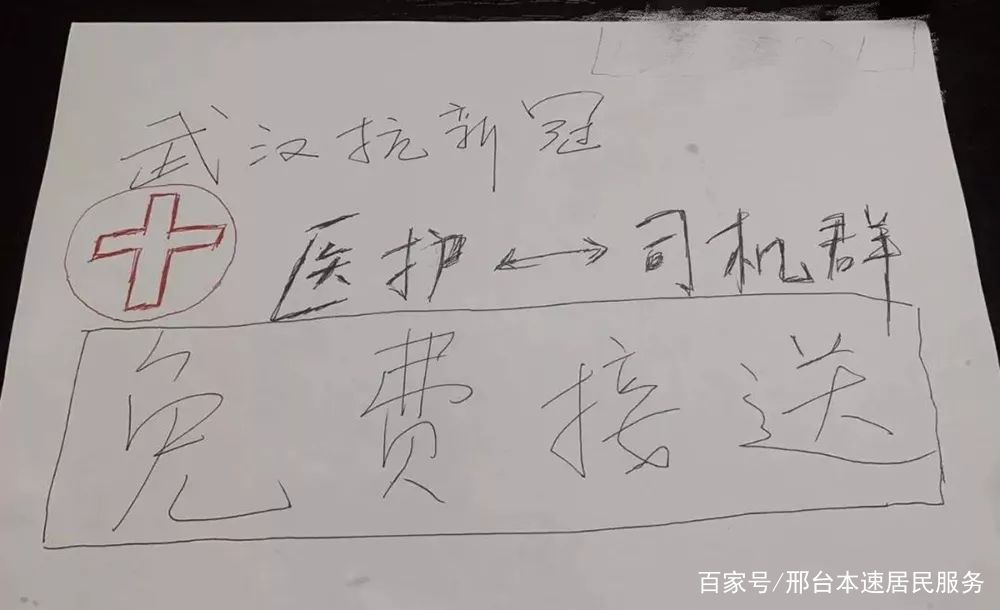 武汉抗新冠
医护←→司机群
免费接送
百家号/邢台本速居民服务